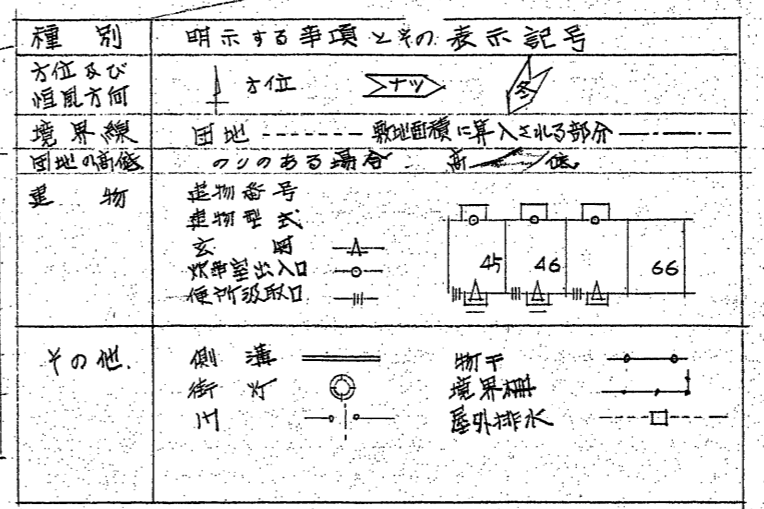 種別 明示する事項とその表示記号
方位及び
恒風方向 方位 ナツ 冬
境界線 団地 敷地面積に算入される部分
団地の高低 のりのある場合 高 低
建物 建物番号
建物型式
玄関
炊事室出入口
便所汲取口
45 46 66
その他. 側溝 物干
街灯 境界柵
門 屋外排水